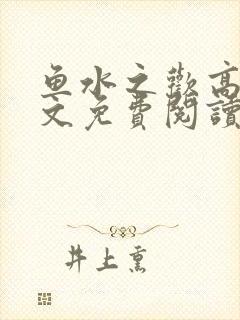 鱼水之歡高
文免費閱讀
井上熏